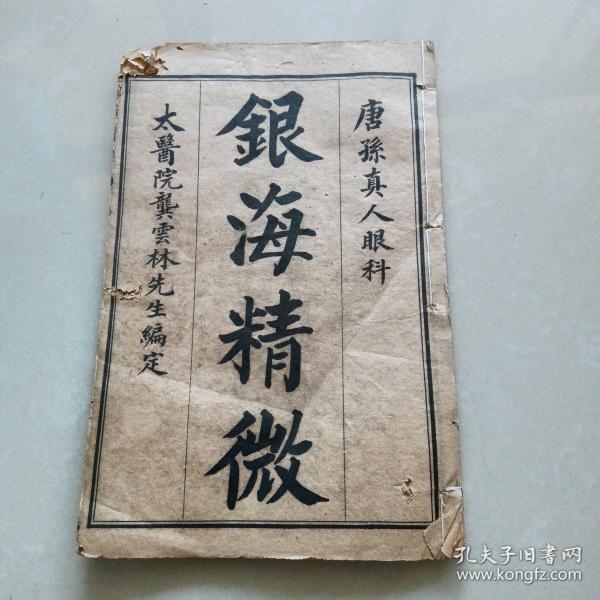 唐孫真人眼科
銀海精微
太醫院龔雲林先生編定
孔夫子旧书网
www.kongfz.com